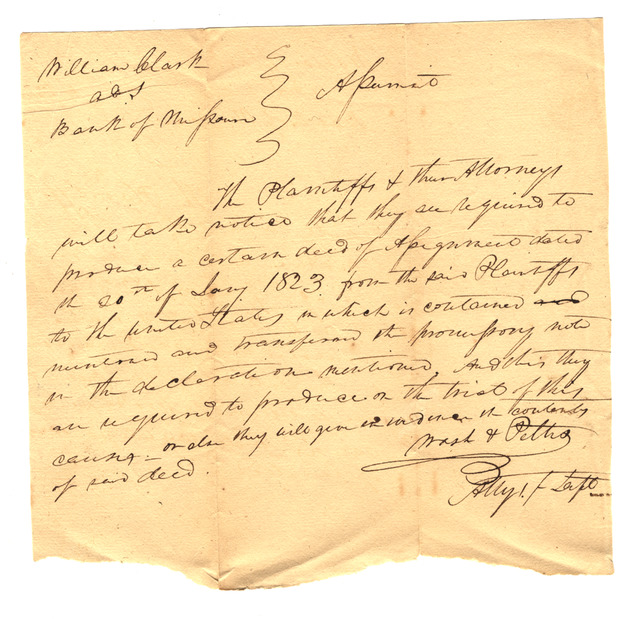 William Clark
ads
Bank of Missouri
Assumsit
The Plaintiffs & their Attorneys
will take notice that they are required to
produce a certain deed of Assignment dated
the 20th of Jany 1823 from the said Plaintiffs
to the United States in which is contained
mentioned and transferred the promissory note
in the declaration mentioned, And this they
are required to produce on the trial of this
cause – or else they will give in evidence the contents
of said deed.
Wash &
Attys. f Deft